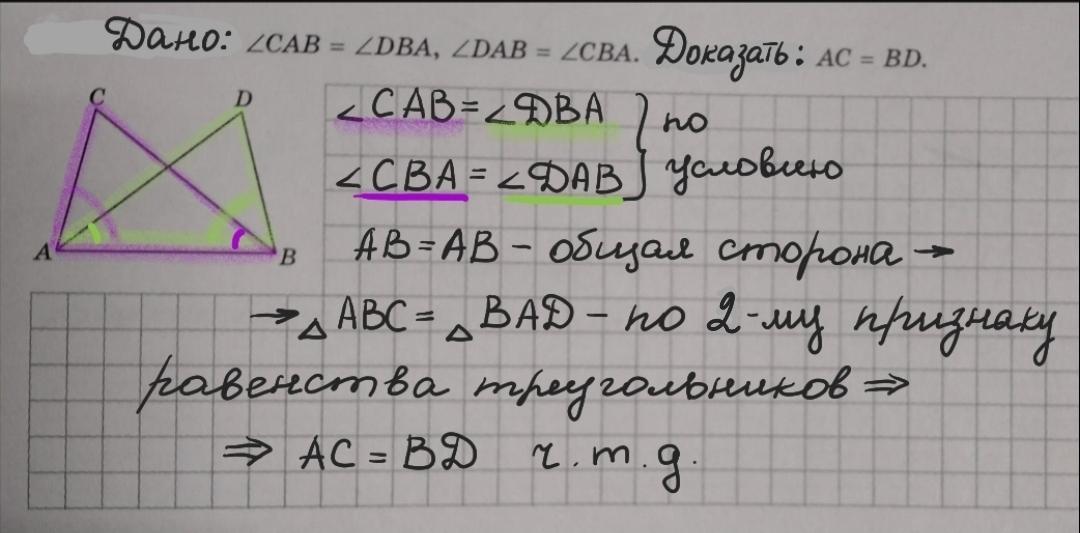 Дано: ∠CAB = ∠DBA, ∠DAB = ∠CBA. Доказать: AC = BD.
C D
A B
∠CAB = ∠DBA } по
∠CBA = ∠DAB } условию
AB = AB – общая сторона →
→ △ABC = △BAD – по 2-му признаку
равенства треугольников ⇒
⇒ AC = BD ч.т.д.